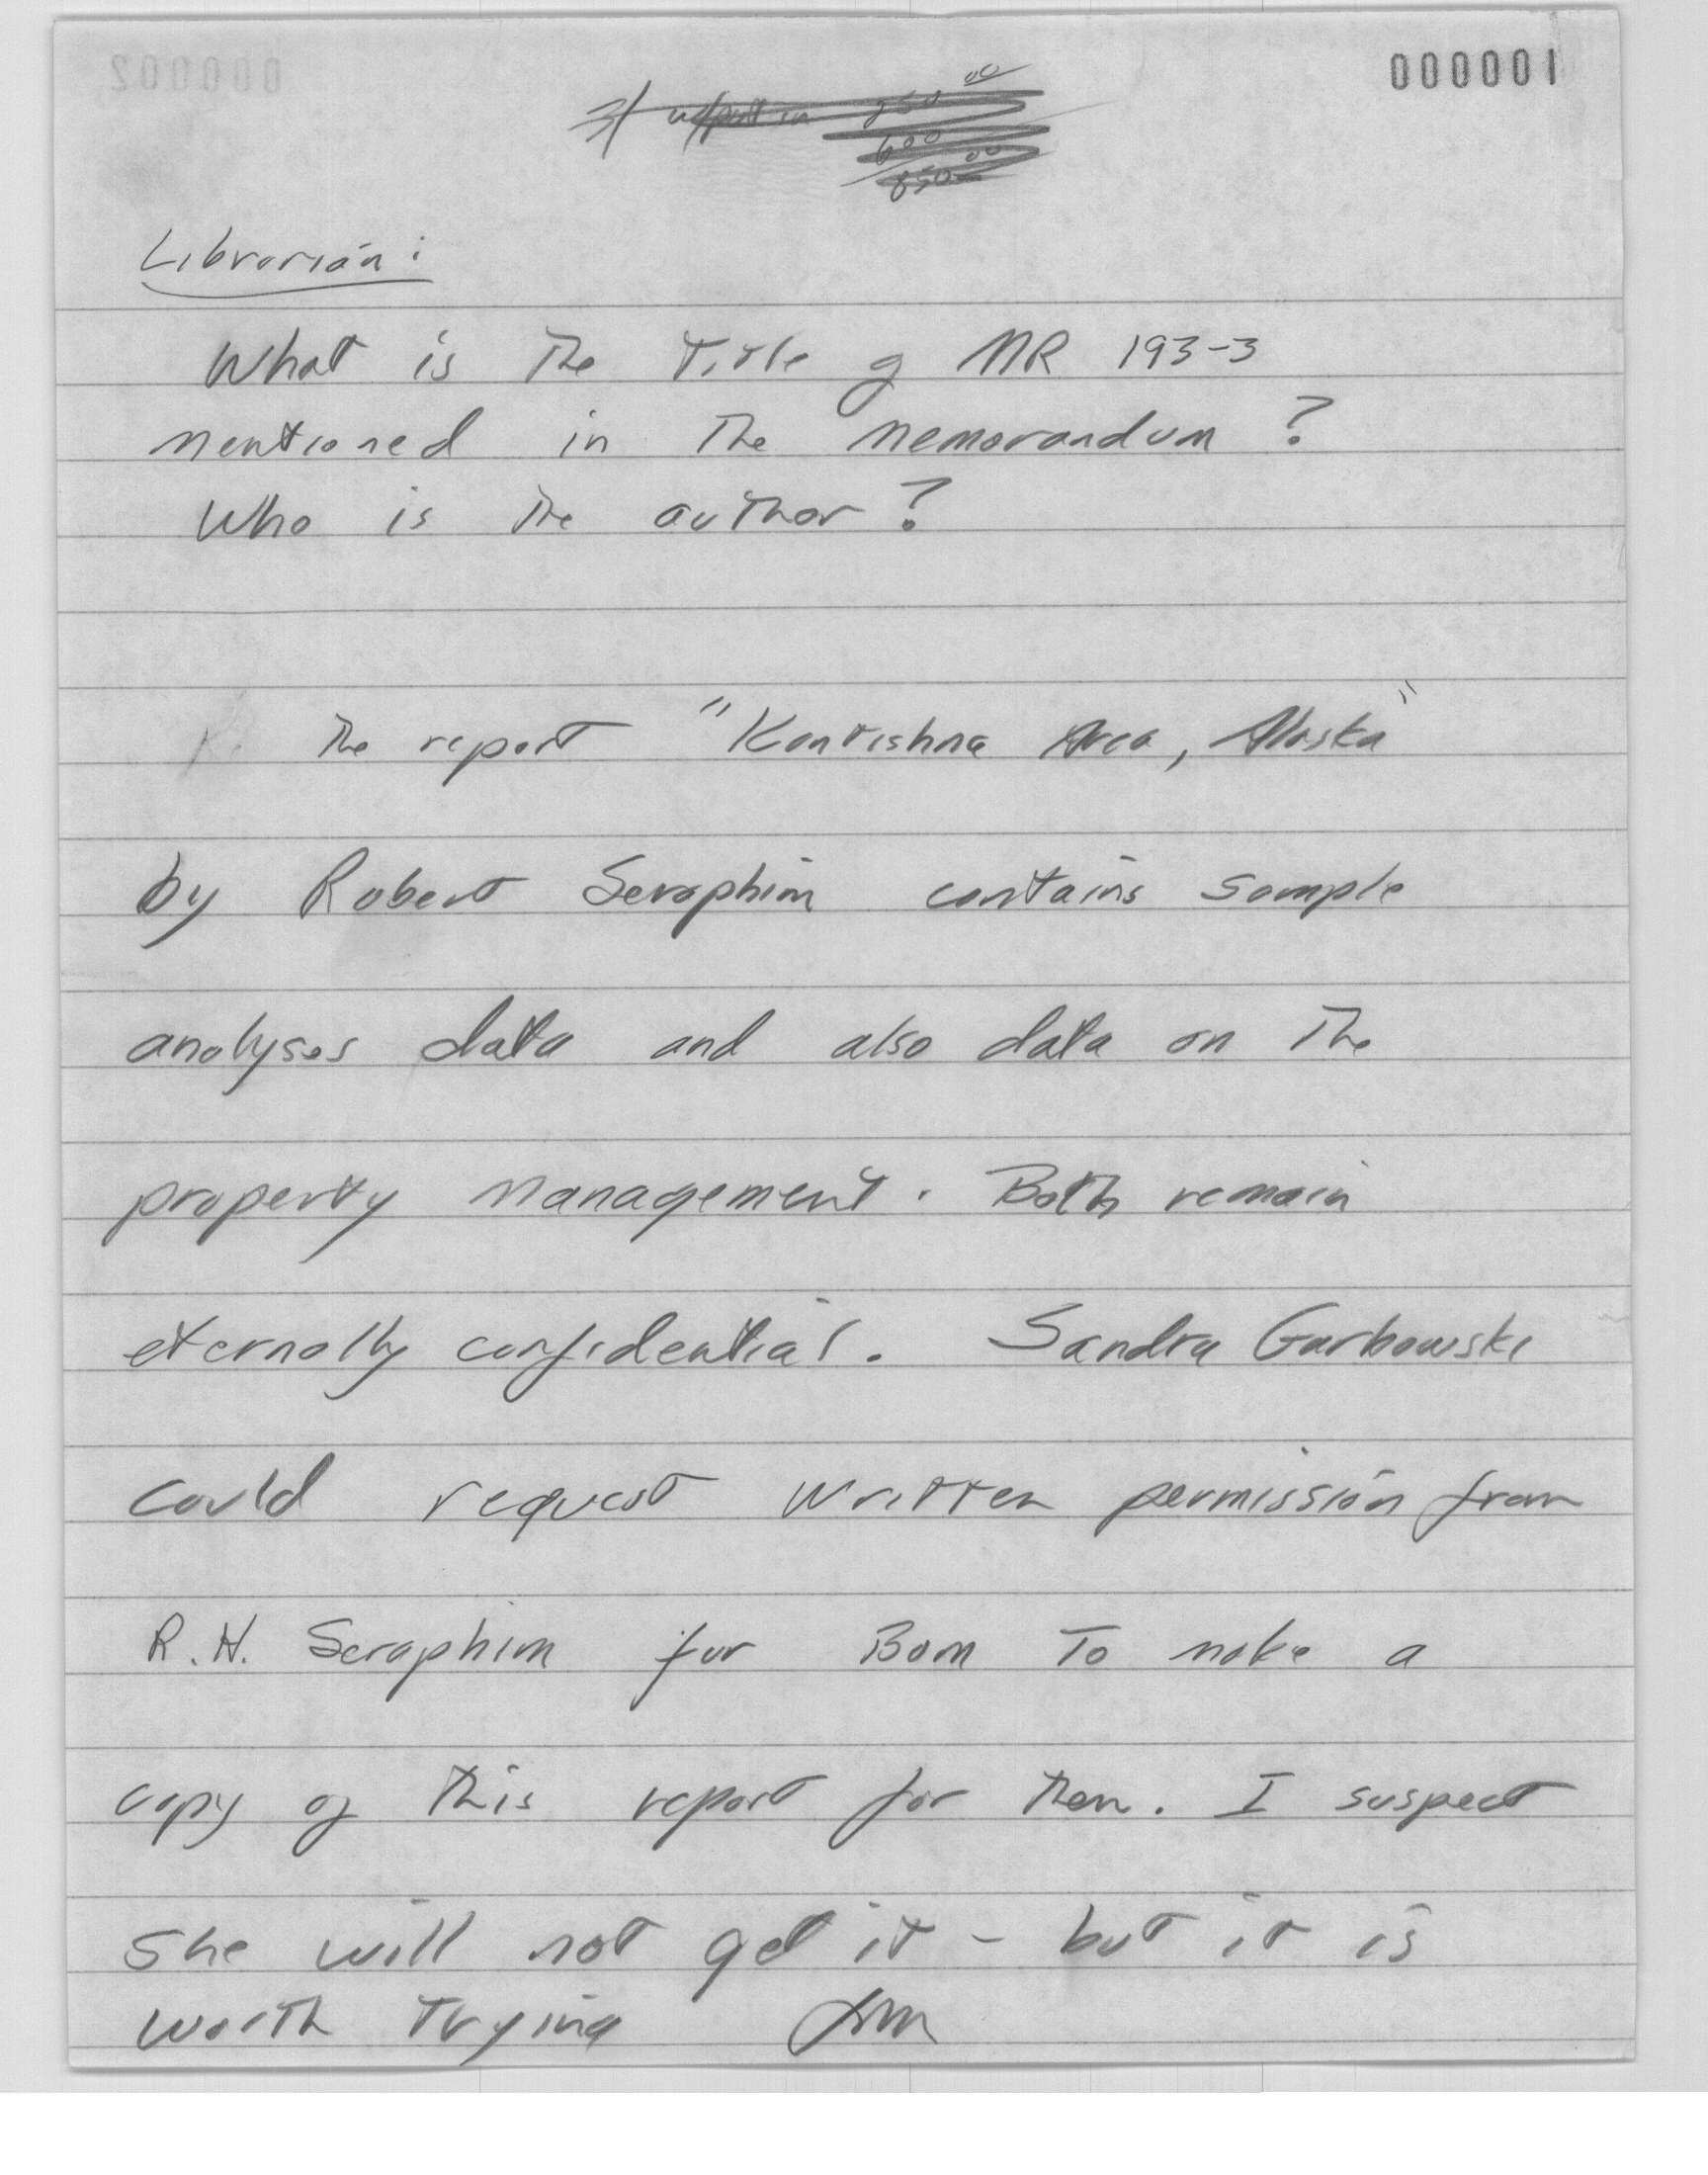 000001
000002
250 00
600
850 00
Librarian:
What is the Title of MR 193-3
mentioned in the memorandum?
Who is the author?
The report "Kantishna Area, Alaska"
by Robert Seraphim contains sample
analyses data and also data on the
property management. Both remain
eternally confidential. Sandra Garbowski
could request written permission from
R.H. Seraphim for Bom to make a
copy of this report for them. I suspect
she will not get it - but it is
worth trying